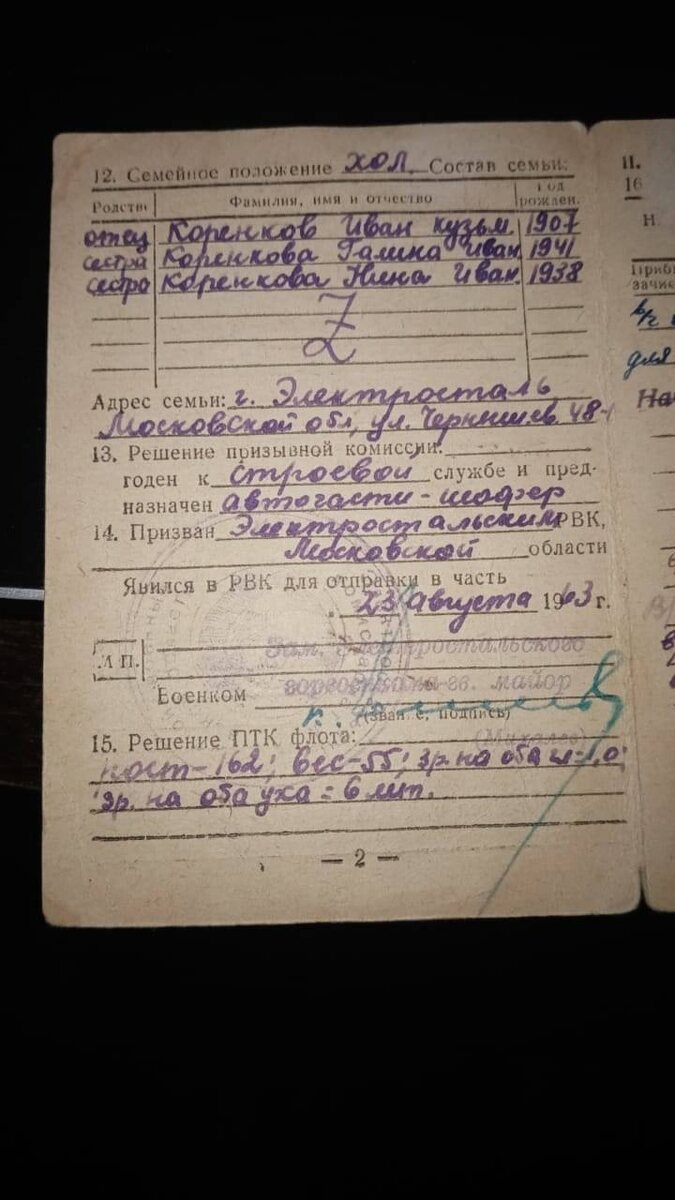 12. Семейное положение хол. Состав семьи:
Родство Фамилия, имя и отчество Год рожден.
отец Коренков Иван кузьм. 1907
сестра Коренкова Галина Иван. 1941
сестра Коренкова Нина Иван. 1938
Z
Адрес семьи: г. Электросталь
Московской обл, ул. Чернышев. 48-
13. Решение призывной комиссии:
годен к строевой службе и пред-
назначен авточасти-шофер
14. Призван Электростальским РВК,
Московской области
Явился в РВК для отправки в часть
23 августа 1963 г.
М.П.
Зам. Электростальского
горвоенкома гв. майор
Военком
(звание, подпись)
15. Решение ПТК флота:
рост-162; вес-55; зр. на оба гл-1,0;
зр. на оба уха = 6 мт.
— 2 —
11.
16
Н.
Приб
зачис
в/ч
для
На